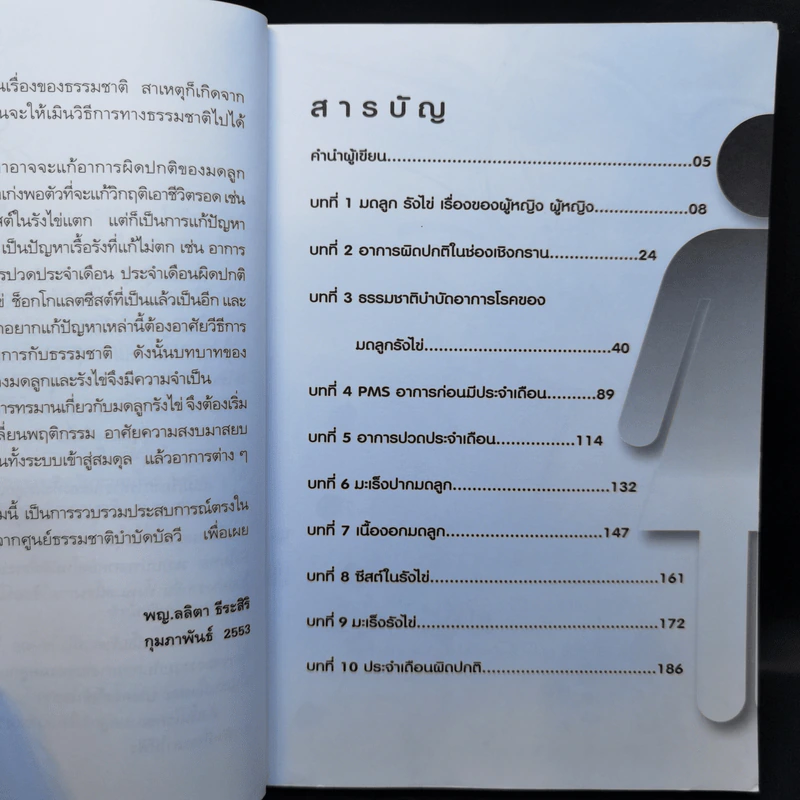 นเรื่องของธรรมชาติ สาเหตุก็เกิดจาก
นจะให้เมินวิธีการทางธรรมชาติไปได้
าอาจจะแก้อาการผิดปกติของมดลูก
เก่งพอตัวที่จะแก้วิกฤติเอาชีวิตรอด เช่น
สต์ในรังไข่แตก แต่ก็เป็นการแก้ปัญหา
เป็นปัญหาเรื้อรังที่แก้ไม่ตก เช่น อาการ
รปวดประจำเดือน ประจำเดือนผิดปกติ
ข่ ช็อกโกแลตซีสต์ที่เป็นแล้วเป็นอีก และ
าอยากแก้ปัญหาเหล่านี้ต้องอาศัยวิธีการ
การกับธรรมชาติ ดังนั้นบทบาทของ
งมดลูกและรังไข่จึงมีความจำเป็น
การทรมานเกี่ยวกับมดลูกรังไข่ จึงต้องเริ่ม
ลี่ยนพฤติกรรม อาศัยความสงบมาสยบ
นทั้งระบบเข้าสู่สมดุล แล้วอาการต่าง ๆ
มนี้ เป็นการรวบรวมประสบการณ์ตรงใน
จากศูนย์ธรรมชาติบำบัดบัลวี เพื่อเผย
พญ.ลลิตา ธีระสิริ
กุมภาพันธ์ 2553
สารบัญ
คำนำผู้เขียน.......................................................05
บทที่ 1 มดลูก รังไข่ เรื่องของผู้หญิง ผู้หญิง...............08
บทที่ 2 อาการผิดปกติในช่องเชิงกราน..................24
บทที่ 3 ธรรมชาติบำบัดอาการโรคของ
มดลูกรังไข่................................40
บทที่ 4 PMS อาการก่อนมีประจำเดือน..........89
บทที่ 5 อาการปวดประจำเดือน..............114
บทที่ 6 มะเร็งปากมดลูก...........................132
บทที่ 7 เนื้องอกมดลูก...........................147
บทที่ 8 ซีสต์ในรังไข่............................................161
บทที่ 9 มะเร็งรังไข่.............................................172
บทที่ 10 ประจำเดือนผิดปกติ..............................186